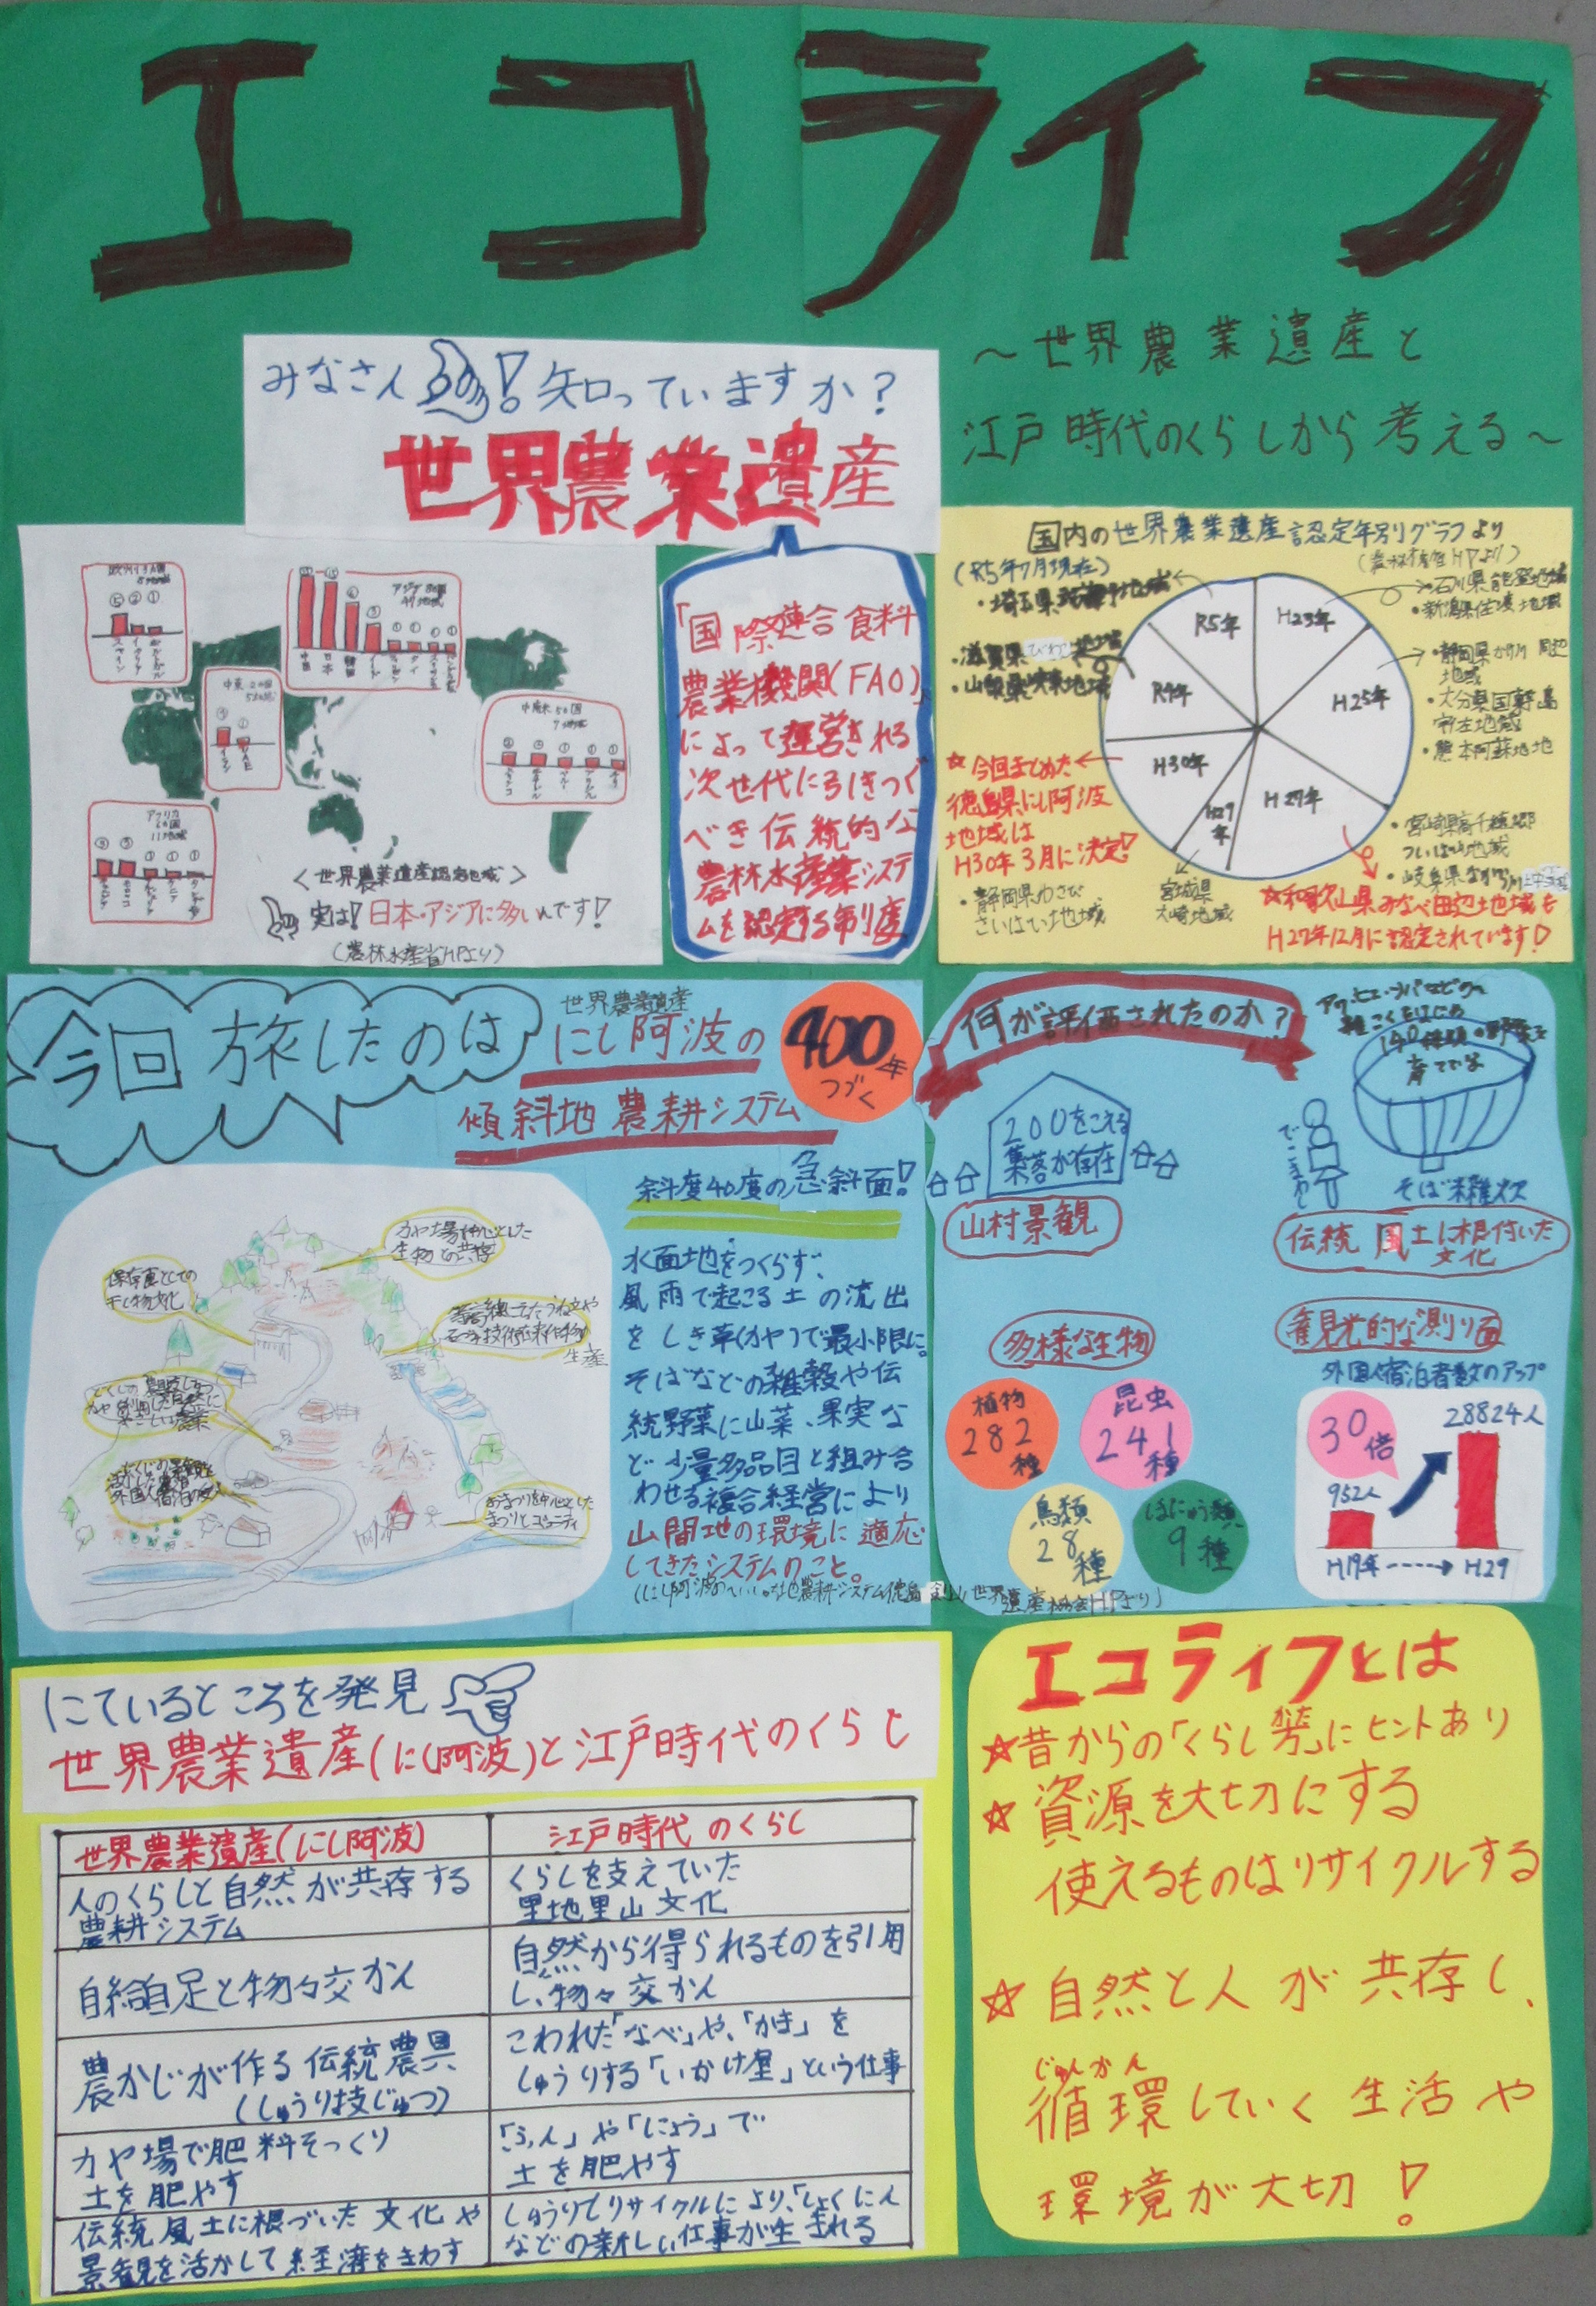 エコライフ
～世界農業遺産と
江戸時代のくらしから考える～
みなさん！知っていますか？
世界農業遺産
アジア
中国
日本
韓国
イラン
UAE
ペルー
アフリカ
＜世界農業遺産認定地域＞
実は！日本・アジアに多いんです！
（農林水産省HPより）
「国際連合食料
農業機関（FAO）」
によって運営される
次世代に引きつぐ
べき伝統的な
農林水産業システ
ムを認定する制度
国内の世界農業遺産認定年別グラフより
（R5年7月現在）
（農林水産省HPより）
R5年
H23年
H25年
H27年
H29年
H30年
R4年
・石川県能登地域
・新潟県佐渡地域
・静岡県かけ川周辺
地域
・大分県国東半島
宇佐地域
・熊本阿蘇地地
・滋賀県びわこ地域
・山梨県峡東地域
☆今回まとめた
徳島県にし阿波
地域は
H30年3月に決定！
・静岡県わさび
さいばい地域
宮城県
大崎地域
・宮崎県高千穂郷
・岐阜県
☆和歌山県みなべ田辺地域も
H27年12月に認定されています！
今回旅したのは
世界農業遺産
にし阿波の
傾斜地農耕システム
400年
つづく
カヤ場を中心とした
生物との共存
保存食としての
干し物文化
生産
外国人宿泊
おまつりを中心とした
まつりとコミュニティ
斜度40度の急斜面！
水面地をつくらず、
風雨で起こる土の流出
をしき草（カヤ）で最小限に。
そばなどの雑穀や伝
統野菜に山菜、果実な
ど少量多品目と組み合
わせる複合経営により
山間地の環境に適応
してきたシステムのこと。
何が評価されたのか？
200をこえる
集落が存在
山村景観
育てている
でこまわし
そば米雑炊
伝統風土に根付いた
文化
多様な生物
植物
282
種
昆虫
241
種
鳥類
28
種
ほにゅう類
9種
観光的な測り面
外国人宿泊者数のアップ
30倍
28824人
952人
H19年----→H29
にているところを発見
世界農業遺産（にし阿波）と江戸時代のくらし
世界農業遺産（にし阿波）
江戸時代のくらし
人のくらしと自然が共存する
農耕システム
くらしを支えていた
里地里山文化
自給自足と物々交かん
自然から得られるものを引用
し、物々交かん
農かじが作る伝統農具
（しゅうり技じゅつ）
こわれた「なべ」や、「かま」を
しゅうりする「いかけ屋」という仕事
カヤ場で肥料そっくり
土を肥やす
「ふん」や「にょう」で
土を肥やす
伝統風土に根づいた文化や
景観を活かして経済をきわす
しゅうりしてリサイクルにより、「しょくにん
などの新しい仕事が生まれる
エコライフとは
☆昔からの「くらし方」にヒントあり
☆資源を大切にする
使えるものはリサイクルする
☆自然と人が共存し、
じゅんかん
循環していく生活や
環境が大切！